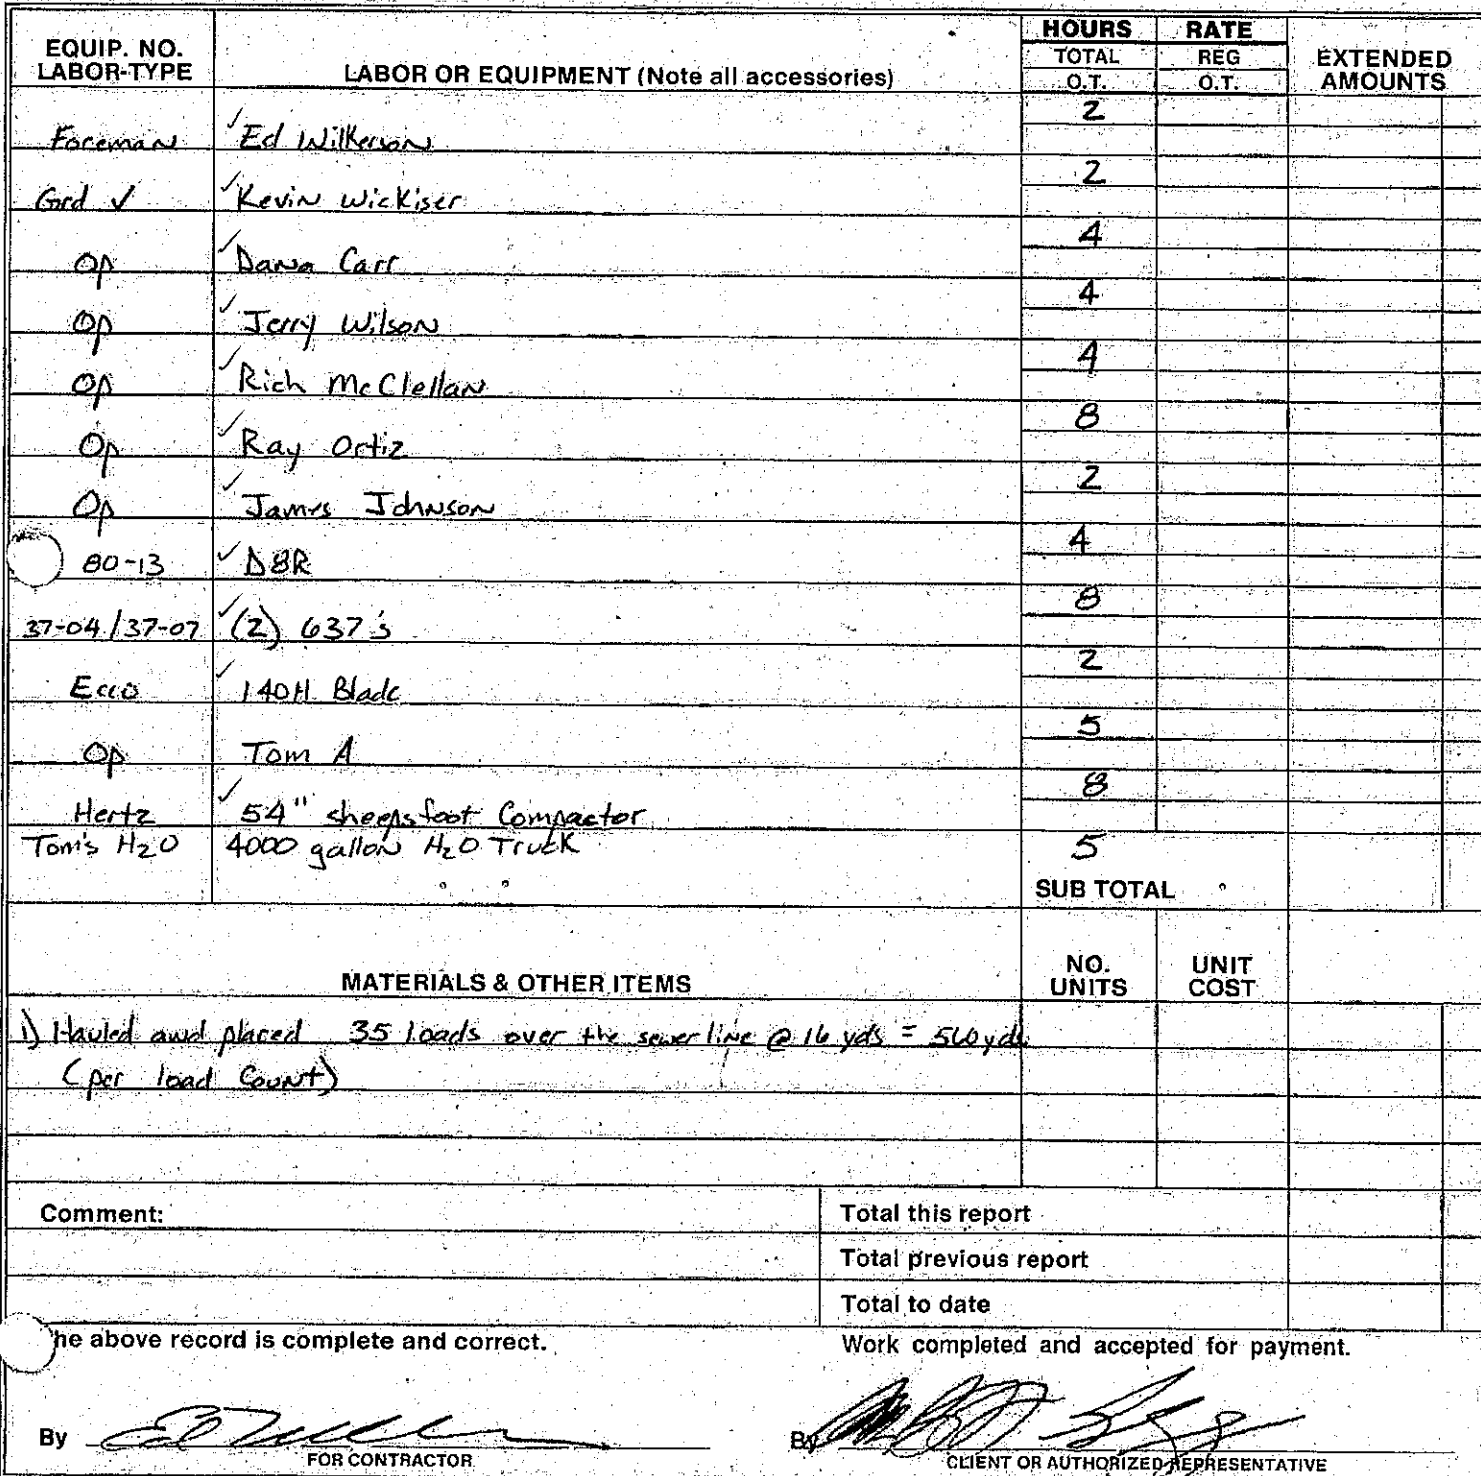 EQUIP. NO. LABOR-TYPE LABOR OR EQUIPMENT (Note all accessories) HOURS TOTAL O.T. RATE REG O.T. EXTENDED AMOUNTS
Foreman ✓ Ed Wilkerson 2
Grd ✓ ✓ Kevin Wickiser 2
Op ✓ Dana Carr 4
Op ✓ Jerry Wilson 4
Op ✓ Rich McClellan 4
Op ✓ Ray Ortiz 8
Op ✓ James Johnson 2
80-13 ✓ D8R 4
37-04/37-07 ✓ (2) 637's 8
Ecco ✓ 140H Blade 2
Op Tom A 5
Hertz ✓ 54" sheepsfoot Compactor 8
Tom's H2O 4000 gallon H2O Truck 5
SUB TOTAL
MATERIALS & OTHER ITEMS NO. UNITS UNIT COST
1) Hauled and placed 35 loads over the sewer line @ 16 yds = 560 yds
(per load Count)
Comment: Total this report
Total previous report
Total to date
he above record is complete and correct. Work completed and accepted for payment.
By By
FOR CONTRACTOR CLIENT OR AUTHORIZED REPRESENTATIVE